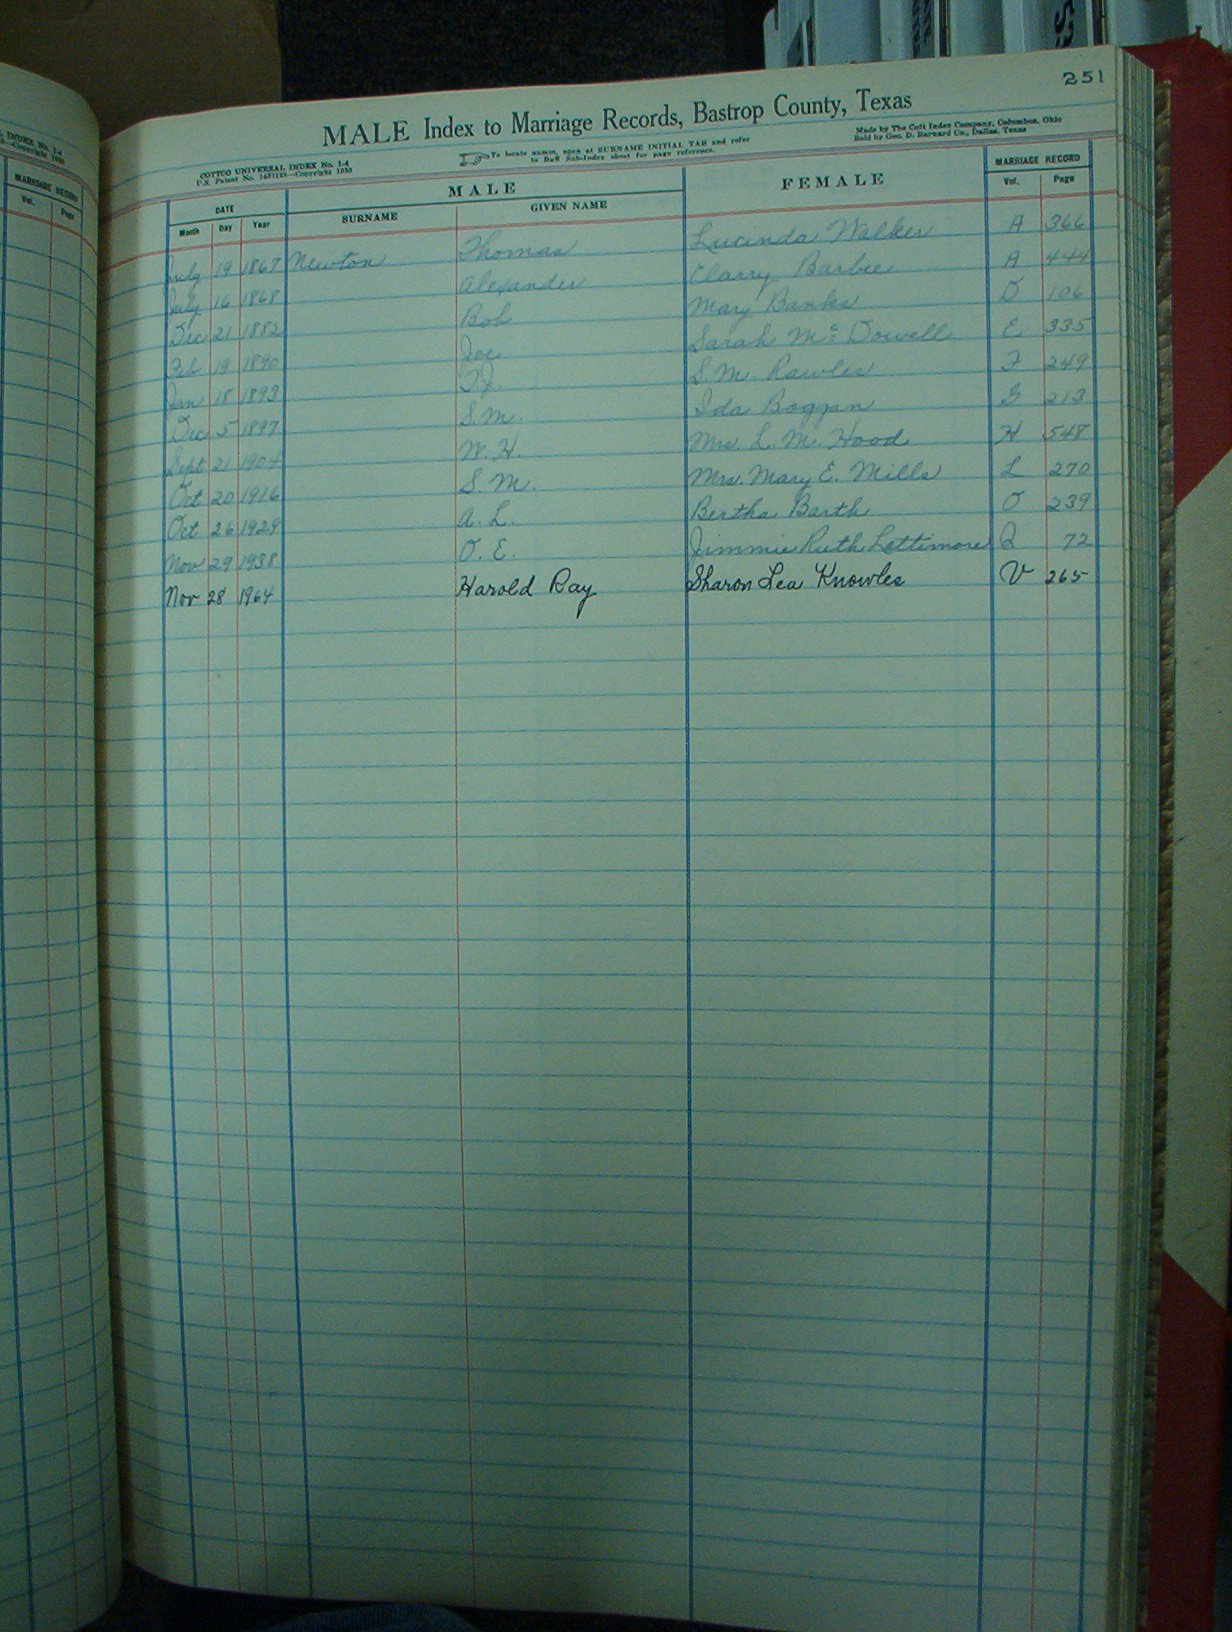 251
MALE Index to Marriage Records, Bastrop County, Texas
COTTCO UNIVERSAL INDEX No. 1-4
U.S. Patent No. Copyright
To locate names, open at SURNAME INITIAL TAB and refer
to Buff Sub-Index sheet for page reference.
Made by The Cott Index Company, Columbus, Ohio
Sold by Geo. D. Barnard Co., Dallas, Texas
DATE MALE FEMALE MARRIAGE RECORD
Month Day Year SURNAME GIVEN NAME Vol. Page
July 19 1867 Newton Thomas Lucinda Walker A 366
July 16 1868 Alexander Clarry Barbee A 444
Dec 21 1882 Bob Mary Banks D 106
Feb 19 1890 Joe Sarah Mc Dowell E 335
Jan 18 1893 S.M. Rawles F 249
Dec 5 1897 S.M. Ida Boggan G 213
Sept 21 1904 W.H. Mrs. L.M. Hood H 548
Oct 20 1916 S.M. Mrs. Mary E. Mills L 270
Oct 26 1929 A.L. Bertha Barth O 239
Nov 29 1938 O.E. Jimmie Ruth Lottimore Q 72
Nov 28 1964 Harold Ray Sharon Lea Knowles V 265
MARRIAGE RECORD
Vol. Page